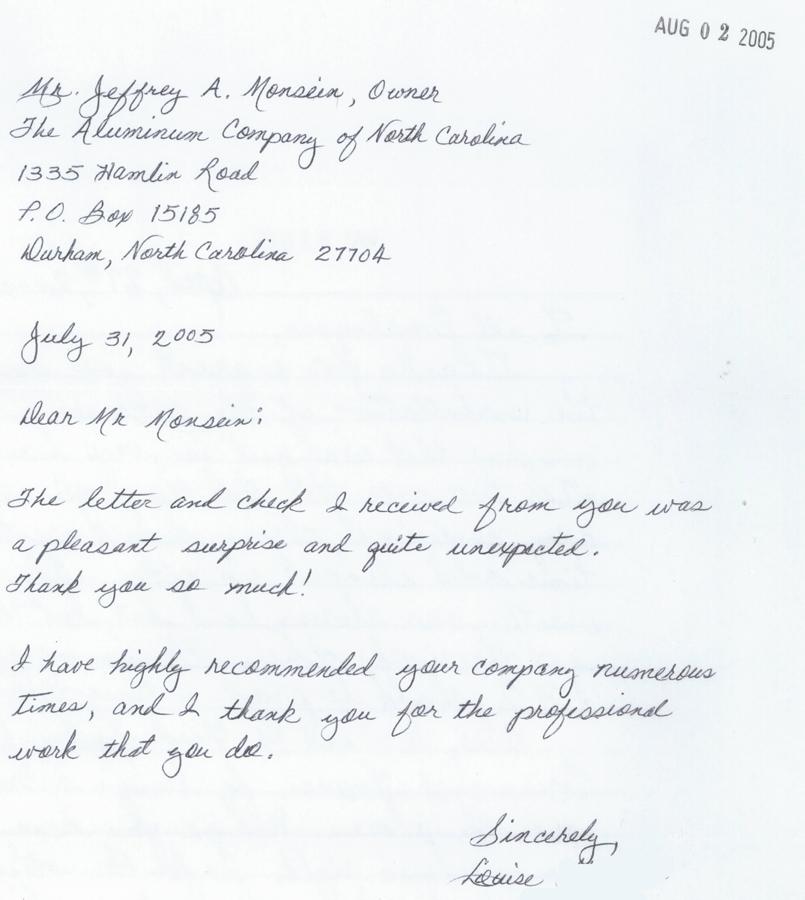 AUG 02 2005
Mr. Jeffrey A. Monsein, Owner
The Aluminum Company of North Carolina
1335 Hamlin Road
P.O. Box 15185
Durham, North Carolina 27704
July 31, 2005
Dear Mr Monsein:
The letter and check I received from you was
a pleasant surprise and quite unexpected.
Thank you so much!
I have highly recommended your company numerous
times, and I thank you for the professional
work that you do.
Sincerely,
Louise